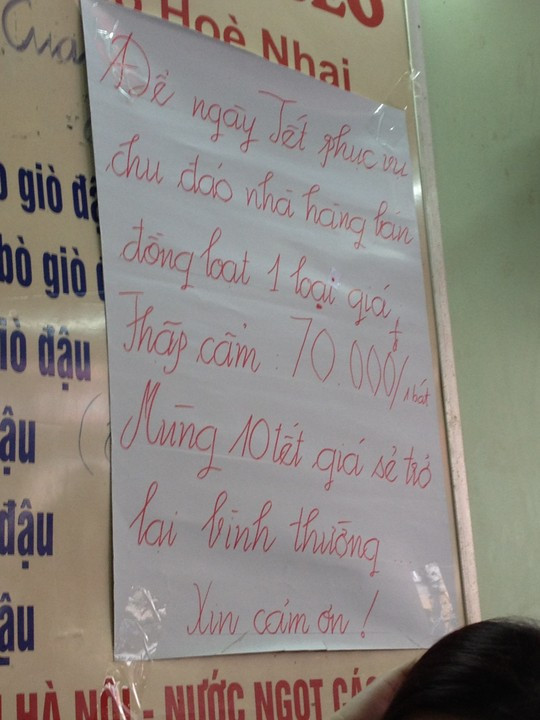 Hoè Nhai
Để ngày Tết phục vụ
chu đáo nhà hàng bán
đồng loạt 1 loại giá
Thập cẩm: 70.000đ/1 bát
Mùng 10 tết giá sẽ trở
lại bình thường...
Xin cảm ơn!
giò
bò giò
giò đậu
đậu
HÀ NỘI - NƯỚC NGỌT